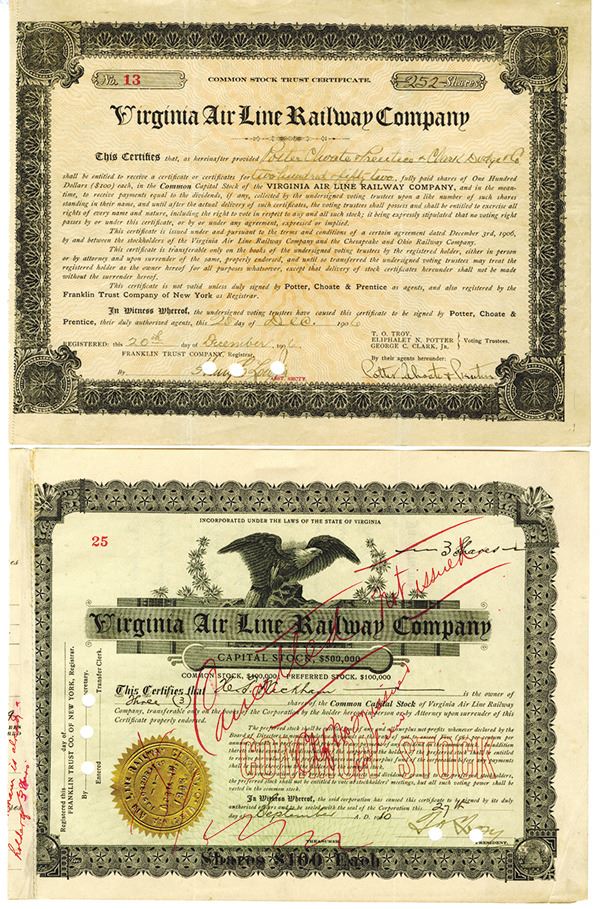 No. 13
COMMON STOCK TRUST CERTIFICATE.
252 Shares
Virginia Air Line Railway Company
This Certifies that, as hereinafter provided Potter, Choate & Prentice & Clark Dodge & Co
shall be entitled to receive a certificate or certificates for two hundred & fifty two, fully paid shares of One Hundred
Dollars ($100) each, in the Common Capital Stock of the VIRGINIA AIR LINE RAILWAY COMPANY, and in the mean-
time, to receive payments equal to the dividends, if any, collected by the undersigned voting trustees upon a like number of such shares
standing in their name, and until after the actual delivery of such certificates, the voting trustees shall possess and shall be entitled to exercise all
rights of every name and nature, including the right to vote in respect to any and all such stock; it being expressly stipulated that no voting right
passes by or under this certificate, or by or under any agreement, expressed or implied.
This certificate is issued under and pursuant to the terms and conditions of a certain agreement dated December 3rd, 1906,
by and between the stockholders of the Virginia Air Line Railway Company and the Chesapeake and Ohio Railway Company.
This certificate is transferable only on the books of the undersigned voting trustees by the registered holder, either in person
or by attorney and upon surrender of the same, properly endorsed, and until so transferred the undersigned voting trustees may treat the
registered holder as the owner hereof for all purposes whatsoever, except that delivery of stock certificates hereunder shall not be made
without the surrender hereof.
This certificate is not valid unless duly signed by Potter, Choate & Prentice as agents, and also registered by the
Franklin Trust Company of New York as Registrar.
In Witness Whereof, the undersigned voting trustees have caused this certificate to be signed by Potter, Choate &
Prentice, their duly authorized agents, this 20 day of Dec. 1906
REGISTERED: this 20th day of December, 1906.
FRANKLIN TRUST COMPANY, Registrar,
By
ASST. SECTY.
T. O. TROY,
ELIPHALET N. POTTER
GEORGE C. CLARK, Jr.
Voting Trustees.
By their agents hereunder:
Potter Choate & Prentice
INCORPORATED UNDER THE LAWS OF THE STATE OF VIRGINIA
25
3 Shares
Virginia Air Line Railway Company
CAPITAL STOCK, $500,000
COMMON STOCK, $400,000 PREFERRED STOCK, $100,000
Cancelled Not issued
This Certifies that Wickham is the owner of
Three (3) shares of the Common Capital Stock of Virginia Air Line Railway
Company, transferable only on the books of the Corporation by the holder hereof in person or by Attorney upon surrender of this
Certificate properly endorsed.
COMMON STOCK
the preferred stock shall not be entitled to vote at stockholders' meetings, but all such voting power shall be
vested in the common stock.
In Witness Whereof, the said corporation has caused this certificate to be signed by its duly
authorized officers and to be sealed with the seal of the Corporation this 27th
day of September A. D. 1910
TREASURER
PRESIDENT.
Shares $100 Each
Registered this day of
FRANKLIN TRUST CO. OF NEW YORK, Registrar.
By Secretary.
Entered Transfer Clerk.